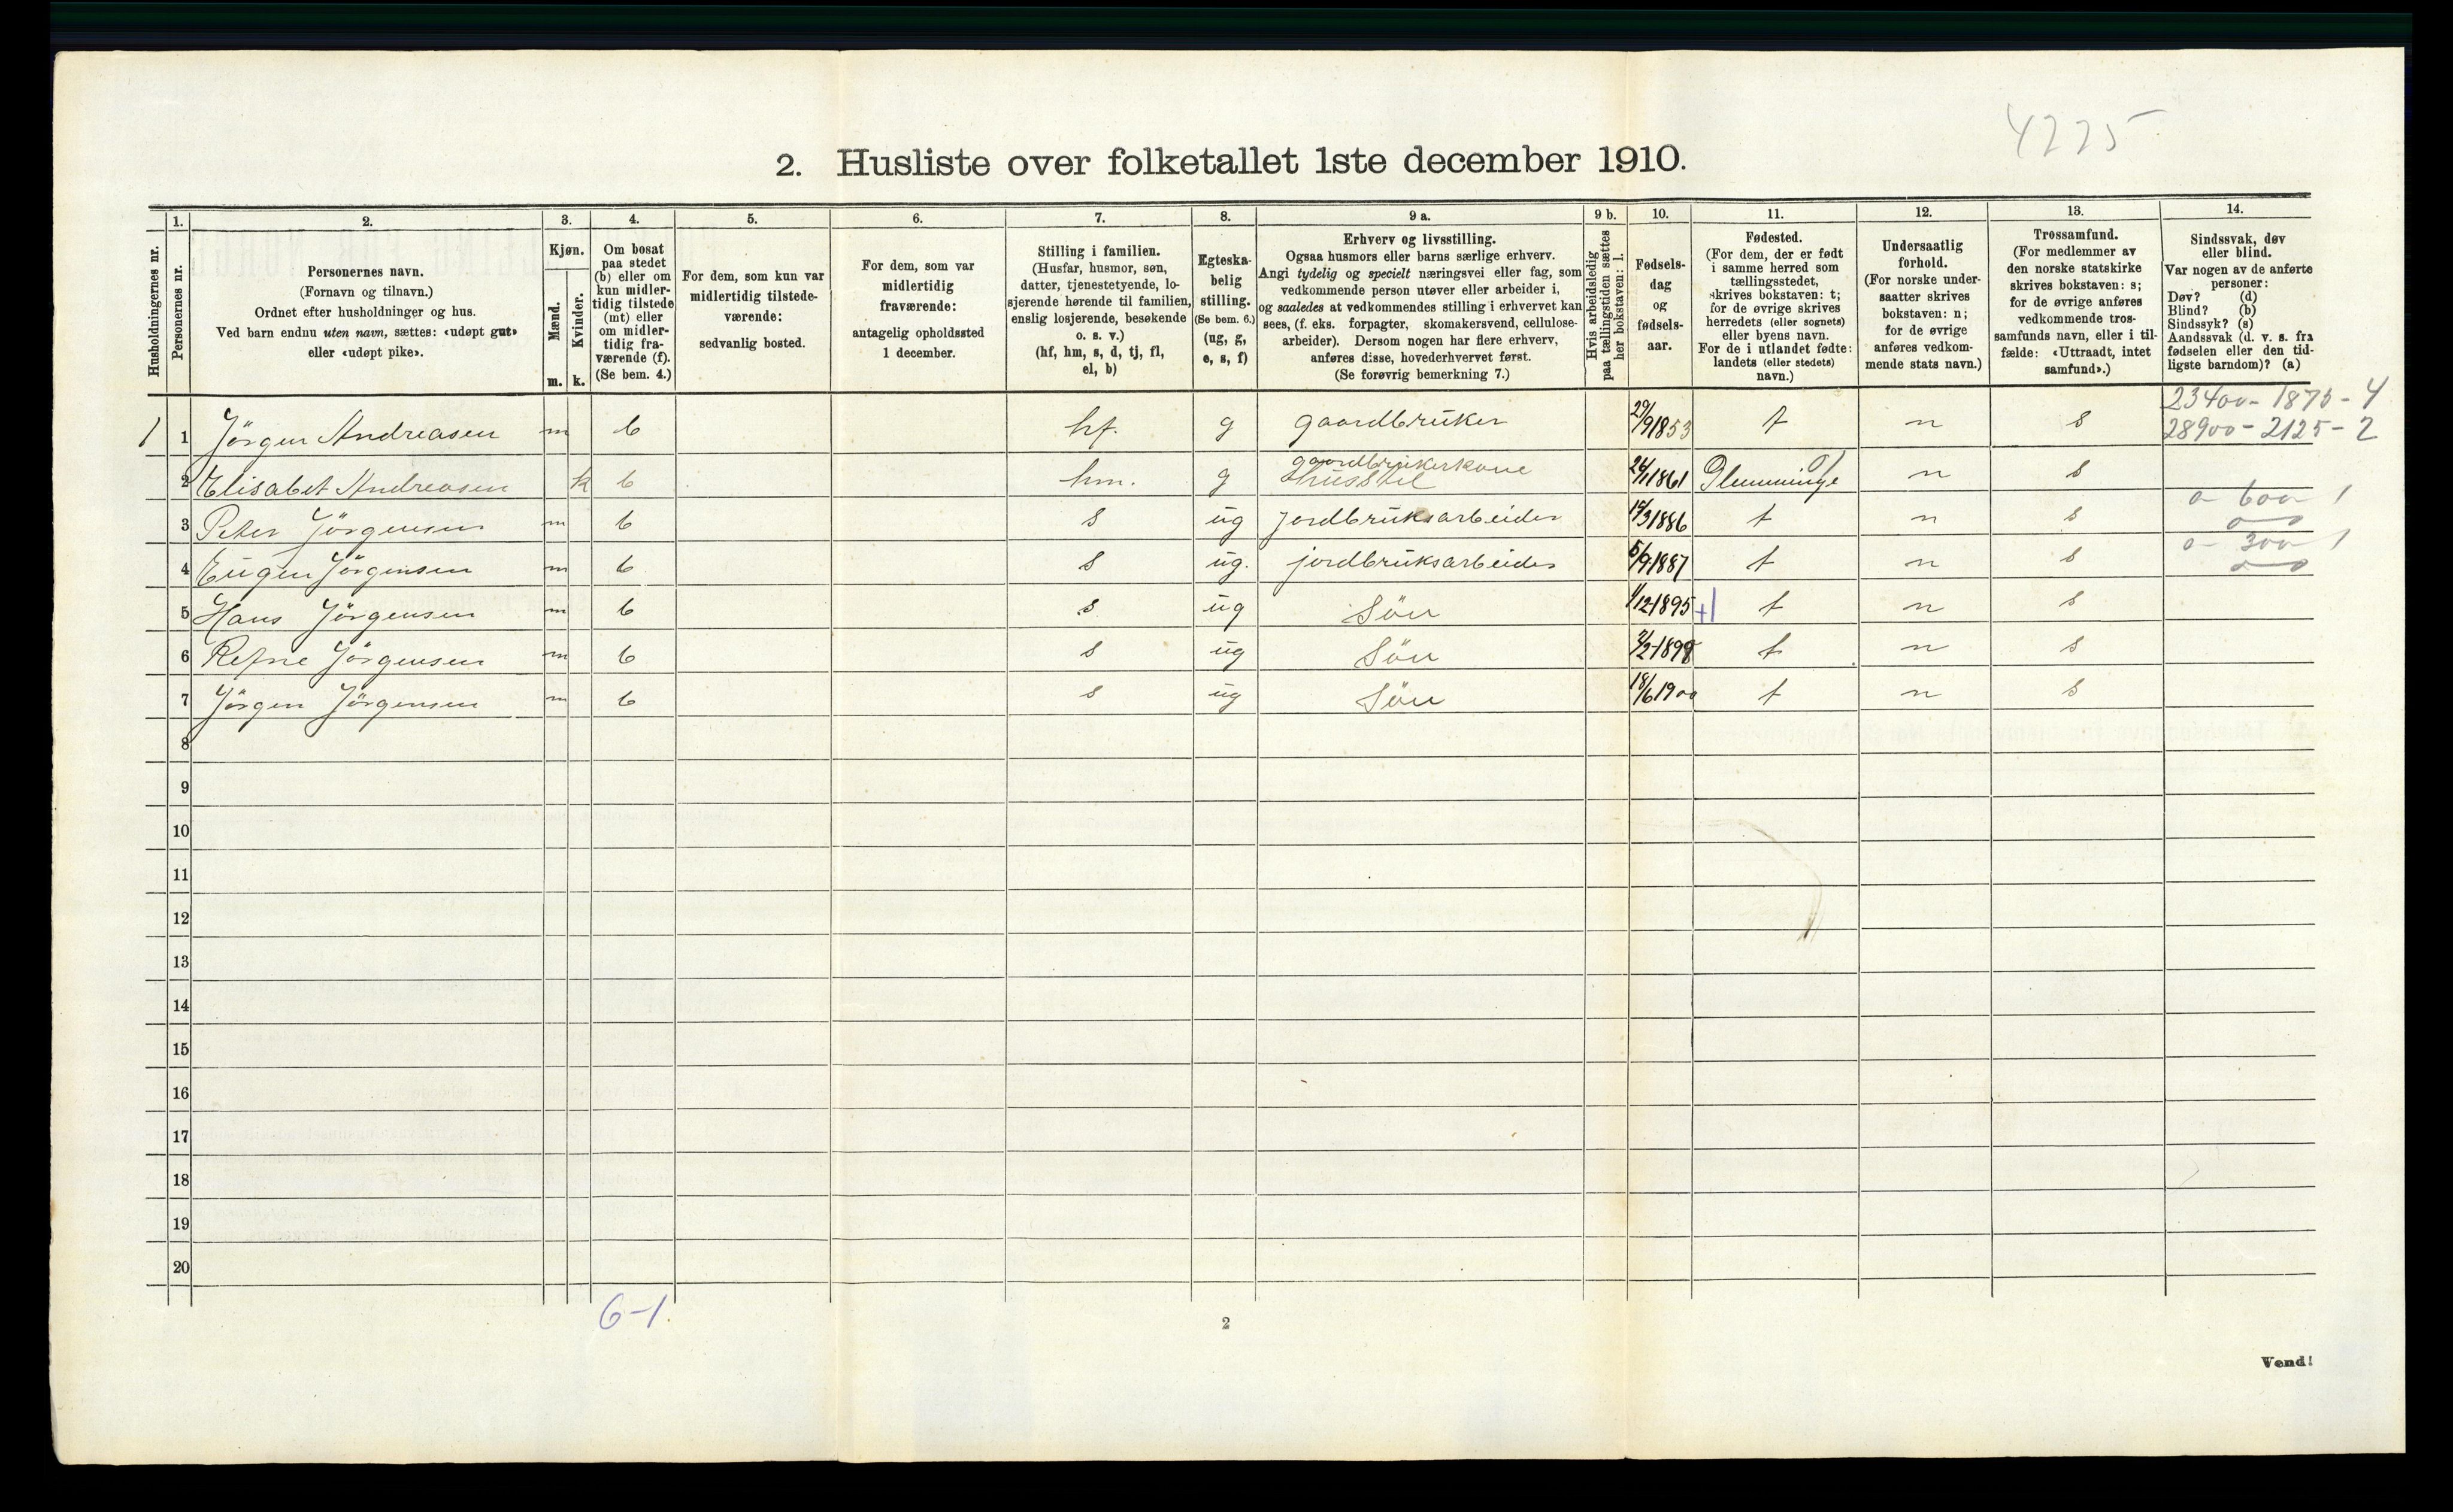 4225
2. Husliste over folketallet 1ste december 1910.
Husholdningernes nr.
1.
Personernes nr.
2.
Personernes navn.
(Fornavn og tilnavn.)
Ordnet efter husholdninger og hus.
Ved barn endnu uten navn, sættes: «udøpt gut»
eller «udøpt pike».
3.
Kjøn.
Mænd.
Kvinder.
m. k.
4.
Om bosat
paa stedet
(b) eller om
kun midler-
tidig tilstede
(mt) eller
om midler-
tidig fra-
værende (f).
(Se bem. 4.)
5.
For dem, som kun var
midlertidig tilstede-
værende:
sedvanlig bosted.
6.
For dem, som var
midlertidig
fraværende:
antagelig opholdssted
1 december.
7.
Stilling i familien.
(Husfar, husmor, søn,
datter, tjenestetyende, lo-
sjerende hørende til familien,
enslig losjerende, besøkende
o. s. v.)
(hf, hm, s, d, tj, fl,
el, b)
8.
Egteska-
belig
stilling.
(Se bem. 6.)
(ug, g,
e, s, f)
9 a.
Erhverv og livsstilling.
Ogsaa husmors eller barns særlige erhverv.
Angi tydelig og specielt næringsvei eller fag, som
vedkommende person utøver eller arbeider i,
og saaledes at vedkommendes stilling i erhvervet kan
sees, (f. eks. forpagter, skomakersvend, cellulose-
arbeider). Dersom nogen har flere erhverv,
anføres disse, hovederhvervet først.
(Se forøvrig bemerkning 7.)
9 b.
Hvis arbeidsledig
paa tællingstiden sættes
her bokstaven: l.
10.
Fødsels-
dag
og
fødsels-
aar.
11.
Fødested.
(For dem, der er født
i samme herred som
tællingsstedet,
skrives bokstaven: t;
for de øvrige skrives
herredets (eller sognets)
eller byens navn.
For de i utlandet fødte:
landets (eller stedets)
navn.)
12.
Undersaatlig
forhold.
(For norske under-
saatter skrives
bokstaven: n;
for de øvrige
anføres vedkom-
mende stats navn.)
13.
Trossamfund.
(For medlemmer av
den norske statskirke
skrives bokstaven: s;
for de øvrige anføres
vedkommende tros-
samfunds navn, eller i til-
fælde: «Uttraadt, intet
samfund».)
14.
Sindssvak, døv
eller blind.
Var nogen av de anførte
personer:
Døv? (d)
Blind? (b)
Sindssyk? (s)
Aandssvak (d. v. s. fra
fødselen eller den tid-
ligste barndom)? (a)
23400- 1875 - 4
1 1 Jörgen Andreasen m b hf. g gaardbruker 29/9 1853 t n s 28900 - 2125 - 2
gaardbrukerkone
2 Elisabet Andreasen k b hm. g Husstel 24/1 1861 n s
0 - 600 1
3 Peter Jörgensen m b s ug jordbruksarbeider 14/3 1886 t n s
0 - 300 1
4 Eugen Jörgensen m b s ug. jordbruksarbeider 5/9 1887 t n s
5 Hans Jörgensen m b s ug Sön 1/12 1895 +1 t n s
6 Refne Jörgensen m b s ug Sön 3/2 1898 t n s
7 Jörgen Jörgensen m b s ug Sön 18/6 1900 t n s
8
9
10
11
12
13
14
15
16
17
18
19
20
6-1.
2
Vend!